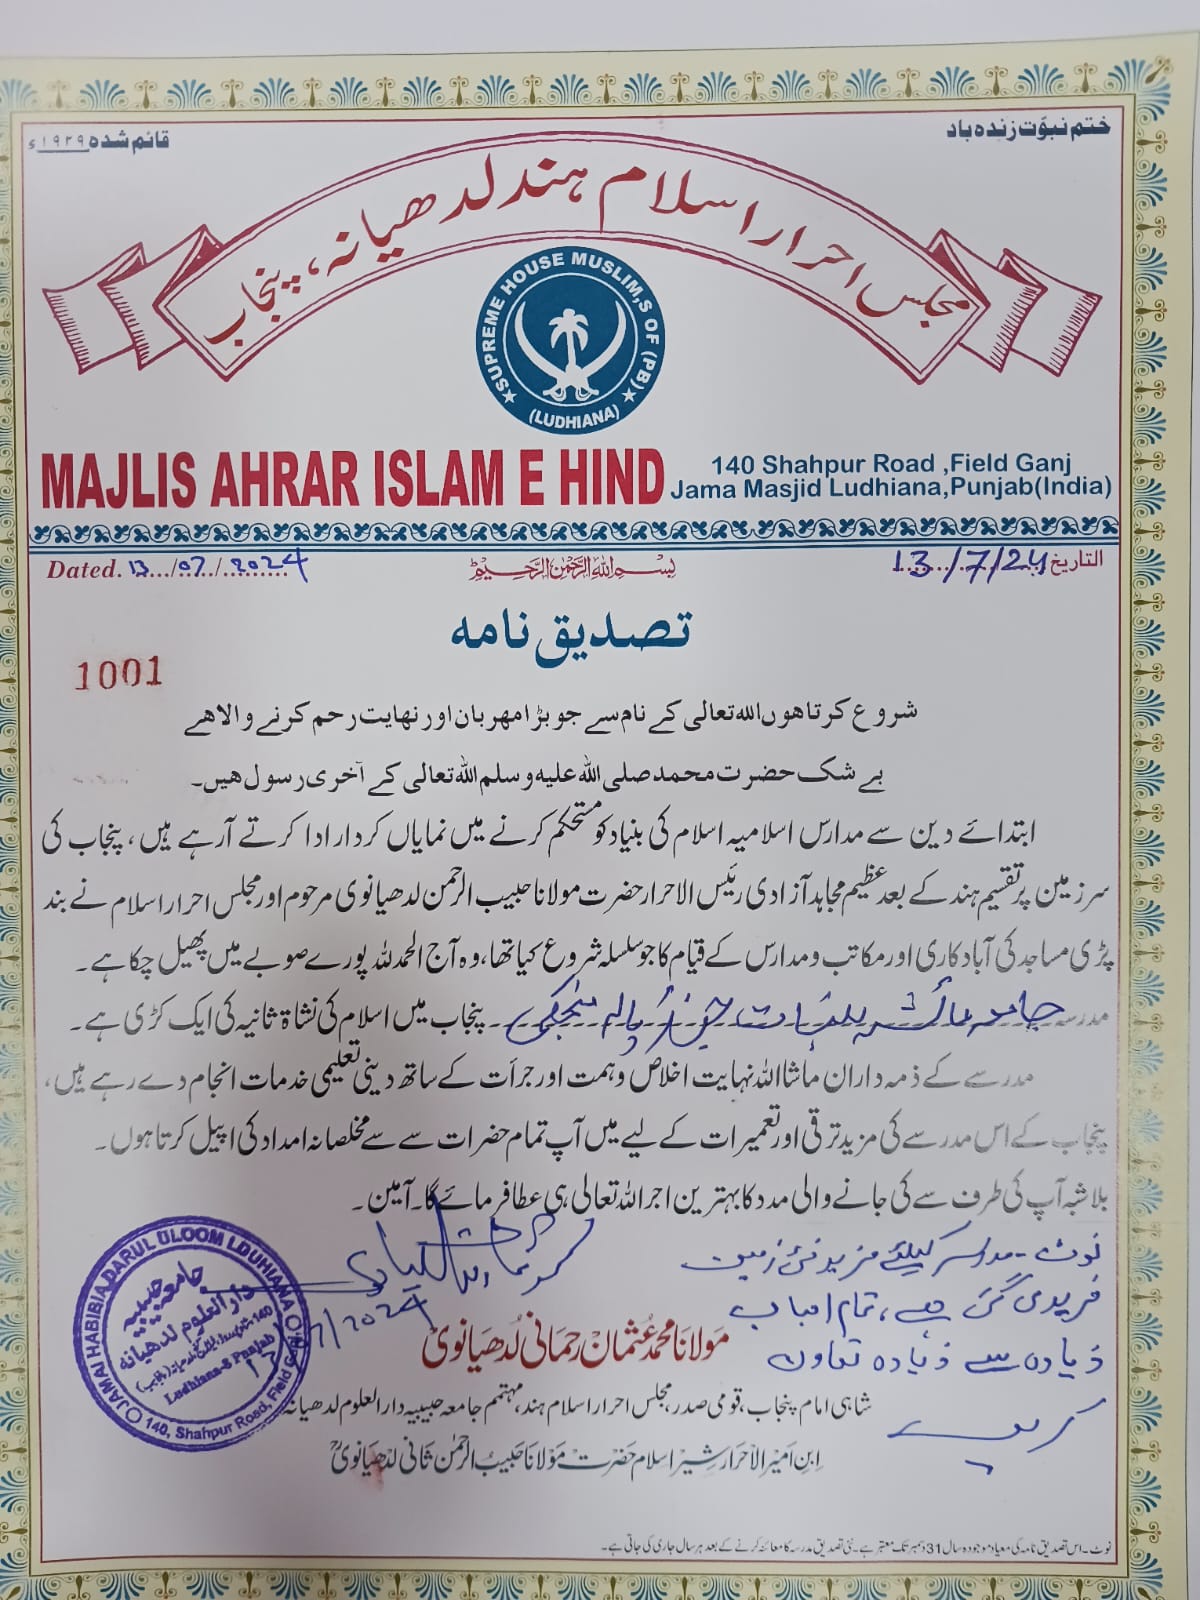 ختم نبوّت زندہ باد
قائم شدہ ۱۹۲۹ء
مجلس احرار اسلام ہند لدھیانہ، پنجاب
SUPREME HOUSE MUSLIM,S OF (PB)
(LUDHIANA)
MAJLIS AHRAR ISLAM E HIND
140 Shahpur Road ,Field Ganj
Jama Masjid Ludhiana,Punjab(India)
Dated. 13/07/2024
بسم اللہ الرحمٰن الرحیم
التاریخ 13/7/24
تصدیق نامہ
1001
شروع کرتا ھوں اللہ تعالی کے نام سے جو بڑا مھربان اور نھایت رحم کرنے والا ھے
بے شک حضرت محمد صلی اللہ علیہ وسلم اللہ تعالی کے آخری رسول ھیں۔
ابتدائے دین سے مدارس اسلامیہ اسلام کی بنیاد کو مستحکم کرنے میں نمایاں کردار ادا کرتے آرہے ہیں، پنجاب کی
سرزمین پر تقسیم ہند کے بعد عظیم مجاہد آزادی رئیس الاحرار حضرت مولانا حبیب الرحمن لدھیانوی مرحوم اور مجلس احرار اسلام نے بند
پڑی مساجد کی آبادکاری اور مکاتب و مدارس کے قیام کا جو سلسلہ شروع کیا تھا، وہ آج الحمدللہ پورے صوبے میں پھیل چکا ہے۔
مدرسہ جامعہ عائشہ للبنات پنجاب میں اسلام کی نشاۃ ثانیہ کی ایک کڑی ہے۔
مدرسے کے ذمہ داران ماشااللہ نہایت اخلاص و ہمت اور جرأت کے ساتھ دینی تعلیمی خدمات انجام دے رہے ہیں،
پنجاب کے اس مدرسے کی مزید ترقی اور تعمیرات کے لیے میں آپ تمام حضرات سے سے مخلصانہ امداد کی اپیل کرتا ہوں۔
بلاشبہ آپ کی طرف سے کی جانے والی مدد کا بہترین اجر اللہ تعالی ہی عطا فرمائے گا۔ آمین۔
نوٹ - مدرسہ کیلئے مزید نئی زمین
خریدی گئی ہے، تمام احباب
زیادہ سے زیادہ تعاون
کریں
JAMAI HABIBIA DARUL ULOOM LDUHIANA
جامعہ حبیبیہ
دارالعلوم لدھیانہ
Ludhiana-8 Punjab
140, Shahpur Road, Field Ganj
13/7/2024
مولانا محمد عثمان رحمانی لدھیانوی
شاہی امام پنجاب، قومی صدر، مجلس احرار اسلام ہند، مہتمم جامعہ حبیبیہ دارالعلوم لدھیانہ
ابن امیر الاحرار شیر اسلام حضرت مولانا حبیب الرحمٰن ثانی لدھیانوی
نوٹ۔ اس تصدیق نامہ کی میعاد موجودہ سال 31 دسمبر تک معتبر ہے۔ نئی تصدیق مدرسہ کا معائنہ کرنے کے بعد ہر سال جاری کی جاتی ہے۔